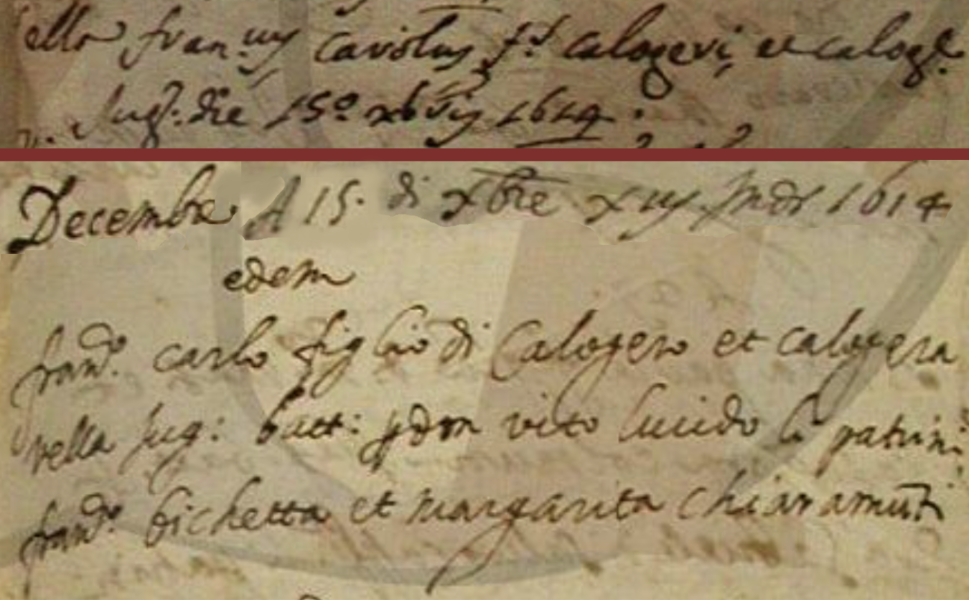 ella fran.cus carolus f.s calogeri et calog.e
Jug: die 15º xbris 1614.
Decembre A 15. di xbre xiij Indi 1614
edem
fran.co carlo figlio di Calogero et calogera
rella Jug: batt: p don vito lucido li patrini
fran.co bichetta et margarita chiaramuti